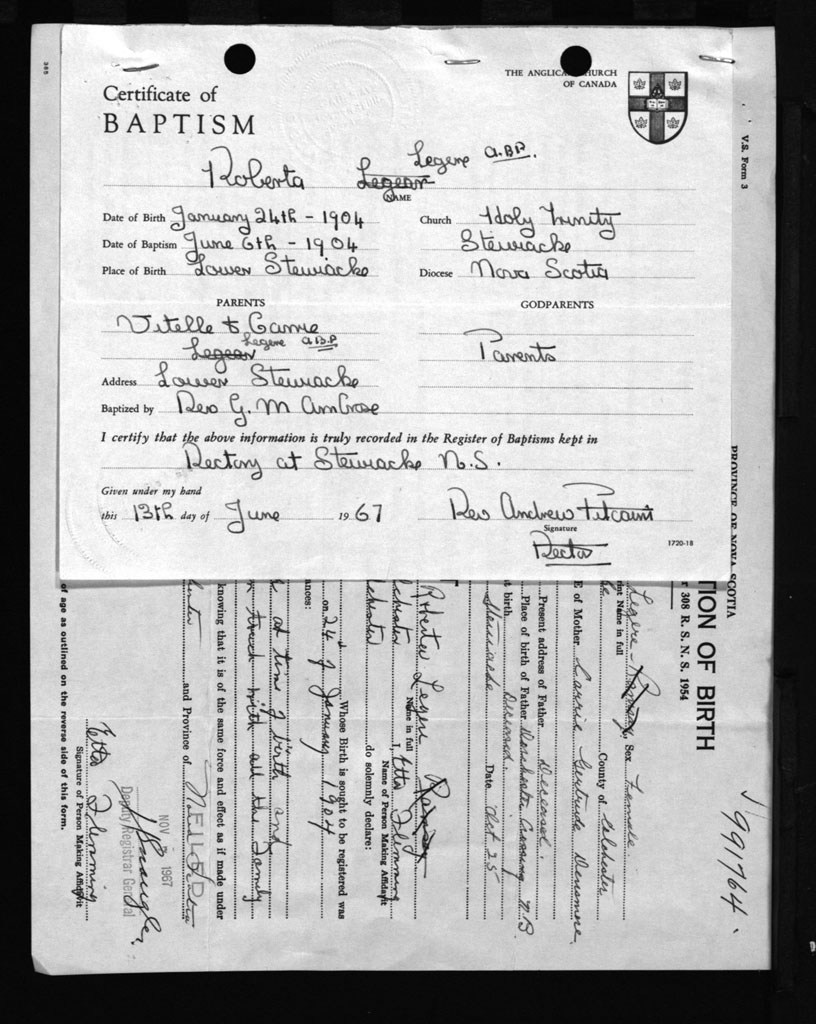 385
THE ANGLICAN CHURCH
OF CANADA
Certificate of
BAPTISM
V.S. Form 3
Legere A.B.P.
Roberta Legear
NAME
Date of Birth January 24th - 1904
Church Holy Trinity
Date of Baptism June 6th - 1904
Stewiacke
Place of Birth Lower Stewiacke
Diocese Nova Scotia
PARENTS
GODPARENTS
Vitelle & Carrie
Legear Legere A.B.P.
Parents
Address Lower Stewiacke
Baptized by Rev G. M Ambrose
I certify that the above information is truly recorded in the Register of Baptisms kept in
Rectory at Stewiacke N.S.
Given under my hand
this 13th day of June 1967
Rev Andrew Pitcairn
Signature
Rector
1720-18
PROVINCE OF NOVA SCOTIA
TION OF BIRTH
r 308 R. S. N. S. 1954
991764
Legere - Ramsay, Sex Female
int Name in full
County of Colchester
E of Mother Carrie Gertrude Densmore
Present address of Father Deceased
Place of birth of Father Dorchester Crossing N.B.
t birth Deceased
Stewiacke Date Oct 25
Roberta Legere Ramsay
Name in full
I, Etta Flemming
Name of Person Making Affidavit
do solemnly declare:
Whose Birth is sought to be registered was
on 24 of January 1904
ances:
at time of birth and
touch with all the family
knowing that it is of the same force and effect as if made under
and Province of Nova Scotia
FILED
NOV 1967
Deputy Registrar General
Etta Flemming
Signature of Person Making Affidavit
of age as outlined on the reverse side of this form.